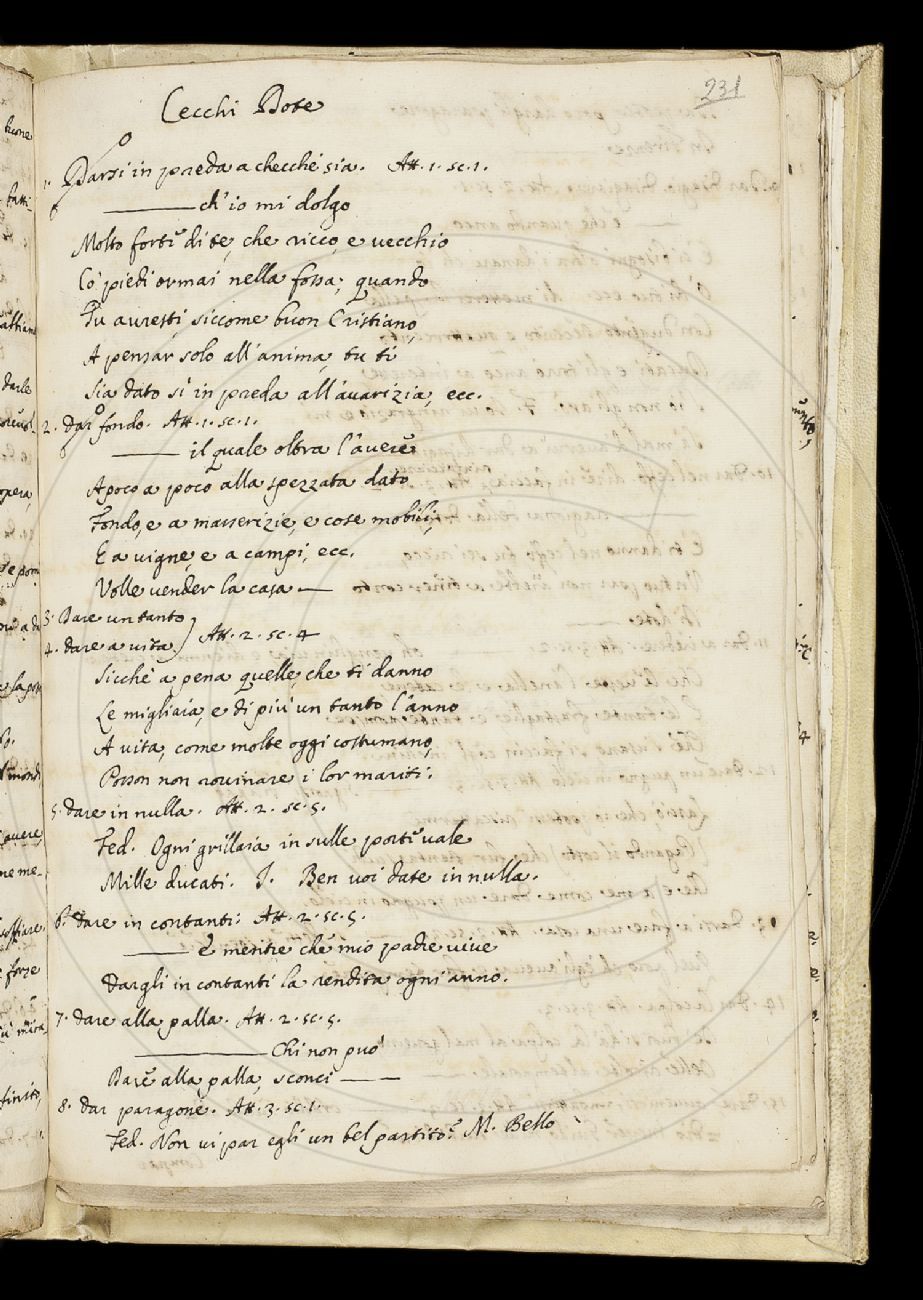 231
Cecchi Dote
1. Darsi in preda a checchè sia. Att. 1. sc. 1.
——— ch' io mi dolgo
Molto forte di te, che ricco, e vecchio
Co' piedi ormai nella fossa; quando
Tu auresti, siccome buon Cristiano,
A pensar solo all' anima, tu ti
Sia dato sì in preda all' auarizia, ecc.
2. Dar fondo. Att. 1. sc. 1.
——— il quale oltra l' auere
Apoco a poco alla spezzata dato
Fondo, e a masserizie, e cose mobili,
E a uigne, e a campi, ecc.
Volle uender la casa —
3. Dare un tanto
4. dare a uita. } Att. 2. sc. 4
Sicchè a pena quelle, che ti danno
Le migliaia, e di piu' un tanto l' anno
A uita, come molte oggi costumano,
Posson non rouinare i lor mariti.
5. dare in nulla. Att. 2. sc. 5.
Fed. Ogni grillaia in sulle porte uale
Mille ducati. I. Ben uoi date in nulla.
6. dare in contanti: Att. 2. sc. 5.
——— è mentre che mio padre uiue
Dargli in contanti la rendita ogni anno.
7. dare alla palla. Att. 2. sc. 5.
——— Chi non può
Dare alla palla, sconci ——
8. dar paragone. Att. 3. sc. 1.
Fed. Non ui par egli un bel partito? M. Bello